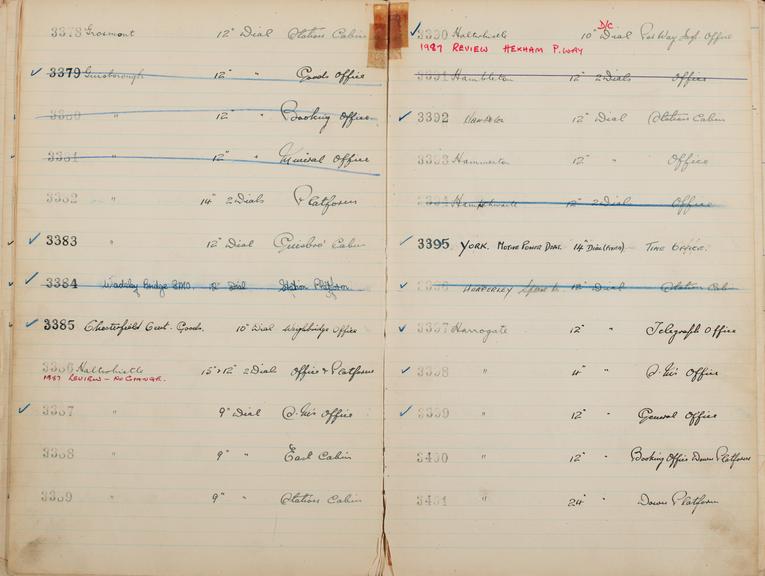 3378 Grosmont 12" Dial Station Cabin
3379 Guisborough 12" " Goods Office
3380 " 12" " Booking Office
3381 " 12" " Mineral Office
3382 " 14" 2 Dials Platform
3383 " 12" Dial Guisbro' Cabin
3384 Wadsley Bridge 12" Dial Station Platform
3385 Chesterfield Cent. Goods. 10" Dial Weighbridge Office
3386 Haltwhistle 15"+12" 2 Dials Office & Platform
1987 REVIEW - NO CHANGE.
3387 " 9" Dial S.M's Office
3388 " 9" " East Cabin
3389 " 9" " Station Cabin
D/C
3390 Haltwhistle 10" Dial Per Way Insp Office
1987 REVIEW HEXHAM P.WAY
3391 Hambleton 12" 2 Dials Office
3392 12" Dial Station Cabin
3393 Hammerton 12" " Office
3394 12" 2 Dials Office
3395 YORK. MOTIVE POWER DEPT. 14" DIAL (FIXED) TIME OFFICE.
3396 12" Dial Station Cab
3397 Harrogate 12" " Telegraph Office
3398 " " S.M's Office
3399 " 12" " General Office
3400 " 12" " Booking Office Down Platform
3401 " 24" " Down Platform